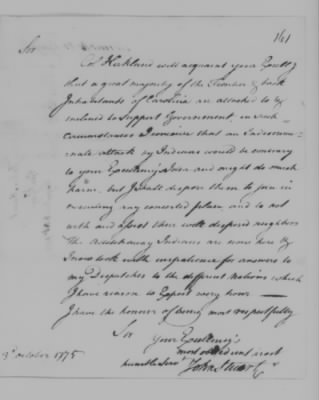 141
Sir
Col. Kirkland will acquaint your Excell.y
that a great majority of the Frontier & back
Inhabitants of Carolina are attached to &
inclined to Support Government, in such
circumstances I conceive that an Indiscrimi-
nate attack by Indians would be contrary
to your Excellency's Idea and might do much
harm, but I shall dispose them to join in
executing any concerted plan, and to
act with and assist their well disposed neighbors
The Indians are now here &
I now look with impatience for answers to
my Dispatches to the different Nations which
I have reason to Expect every hour —
I have the honour of being most respectfully
Sir
Your Excellency's
most obedient and
humble Serv.t
John Stuart
3.d October 1775